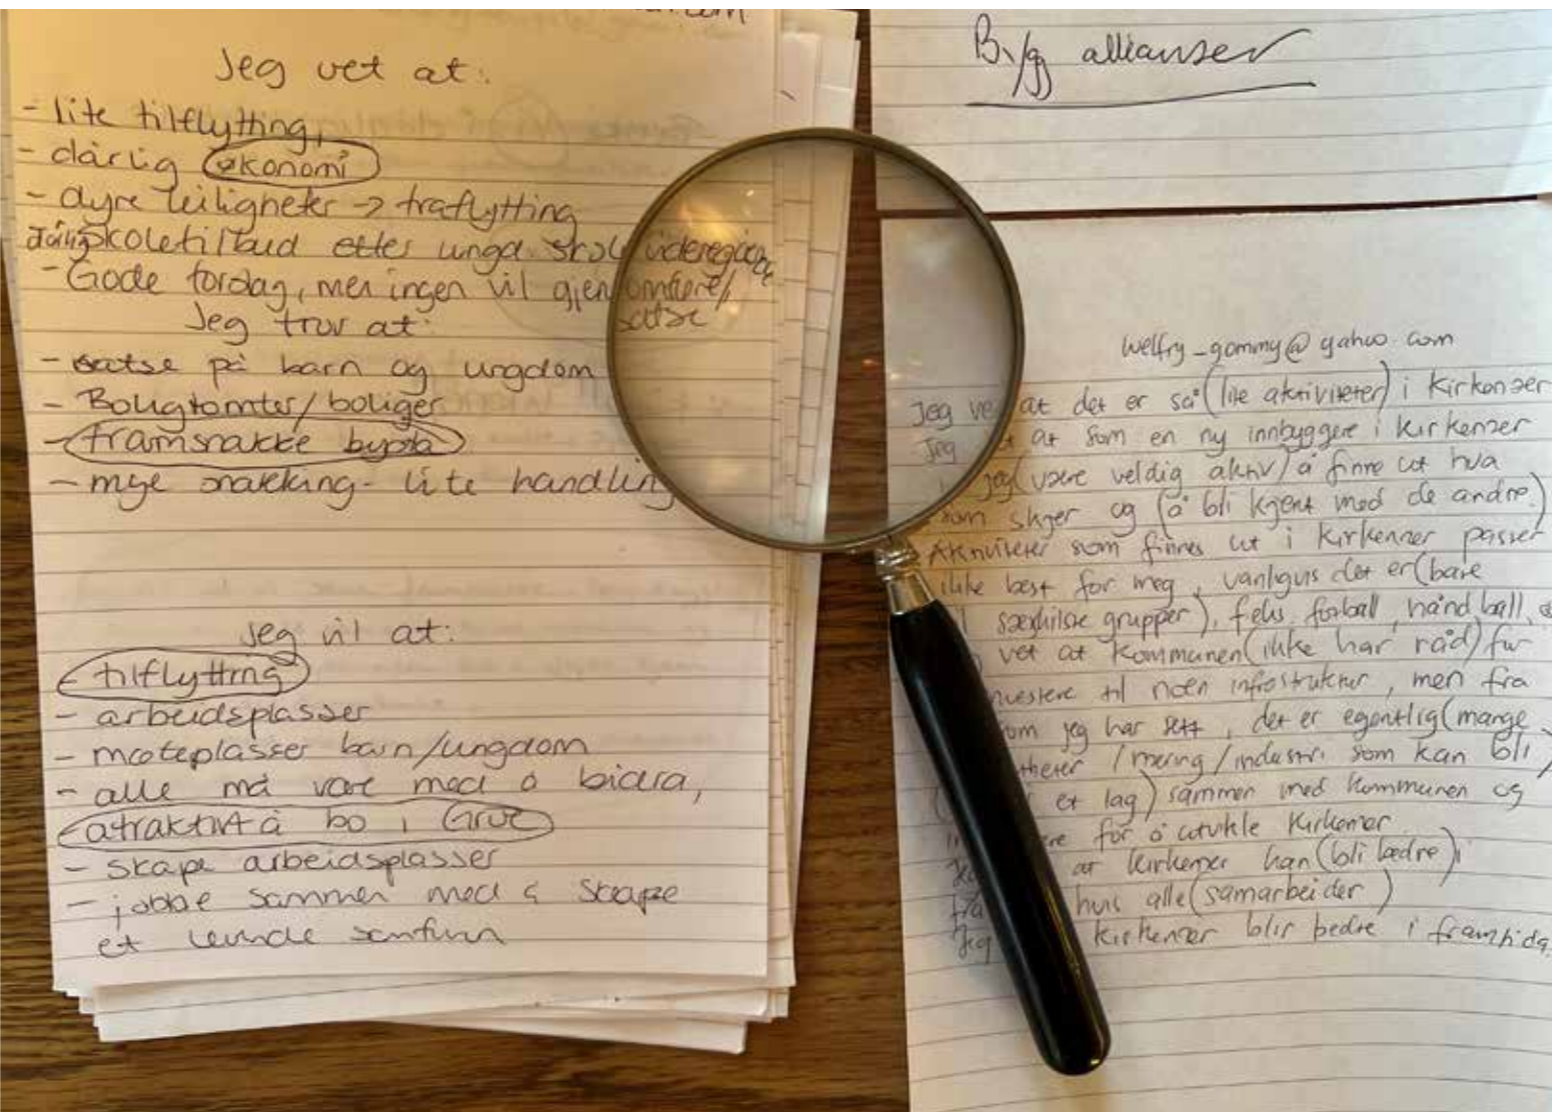 Jeg vet at:
- lite tilflytting,
- dårlig økonomi
- dyre leiligheter -> fraflytting
Dårlig skoletilbud etter ungd. skole videregående
- Gode forslag, men ingen vil gjennomføre/
satse
Jeg tror at:
- satse på barn og ungdom
- Boligtomter/boliger
- framsnakke byen
- mye snakking - lite handling
Jeg vil at:
- tilflytting
- arbeidsplasser
- møteplasser barn/ungdom
- alle må være med å bidra,
atraktivt å bo i
- skape arbeidsplasser
- jobbe sammen med å skape
et levende samfunn
Bygg allianser
welfry_gommy@yahoo.com
Jeg vet at det er så (lite aktiviteter) i Kirkenær
Jeg at som en ny innbyggere i Kirkenær
jeg (være veldig aktiv) å finne ut hva
som skjer og (å bli kjent med de andre.)
Aktiviteter som finnes ut i Kirkenær passer
ikke best for meg, vanligvis det er (bare
særskilte grupper), f.eks. fotball, håndball,
vet at kommunen (ikke har råd) for
investere til noen infrastruktur, men fra
som jeg har sett, det er egentlig (mange
/næring/industri som kan bli
i et lag) sammen med kommunen og
for å utvikle Kirkenær.
at Kirkenær kan (bli bedre)
hvis alle (samarbeider)
Jeg Kirkenær blir bedre i framtida.